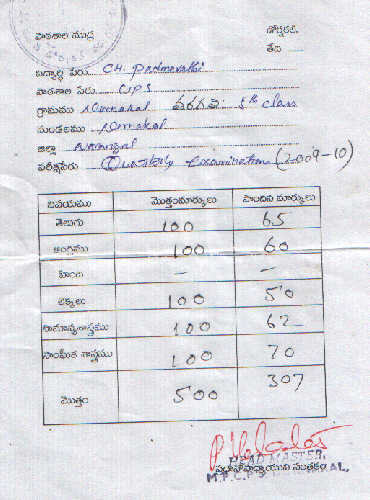 పాఠశాల ముద్ర
తేది
విద్యార్థి పేరు CH. Padmavathi
పాఠశాల పేరు UPS
గ్రామము Narmakal తరగతి 5th class
మండలము Narmakal
జిల్లా
పరీక్షపేరు Quarterly Examination (2009-10)
విషయము మొత్తంమార్కులు పొందిన మార్కులు
తెలుగు 100 65
ఆంగ్లము 100 60
హింది – –
లెక్కలు 100 50
సామాన్యశాస్త్రము 100 62
సాంఘిక శాస్త్రము 100 70
మొత్తం 500 307
HEAD MASTER,
ప్రధానోపాధ్యాయుని సంతకం